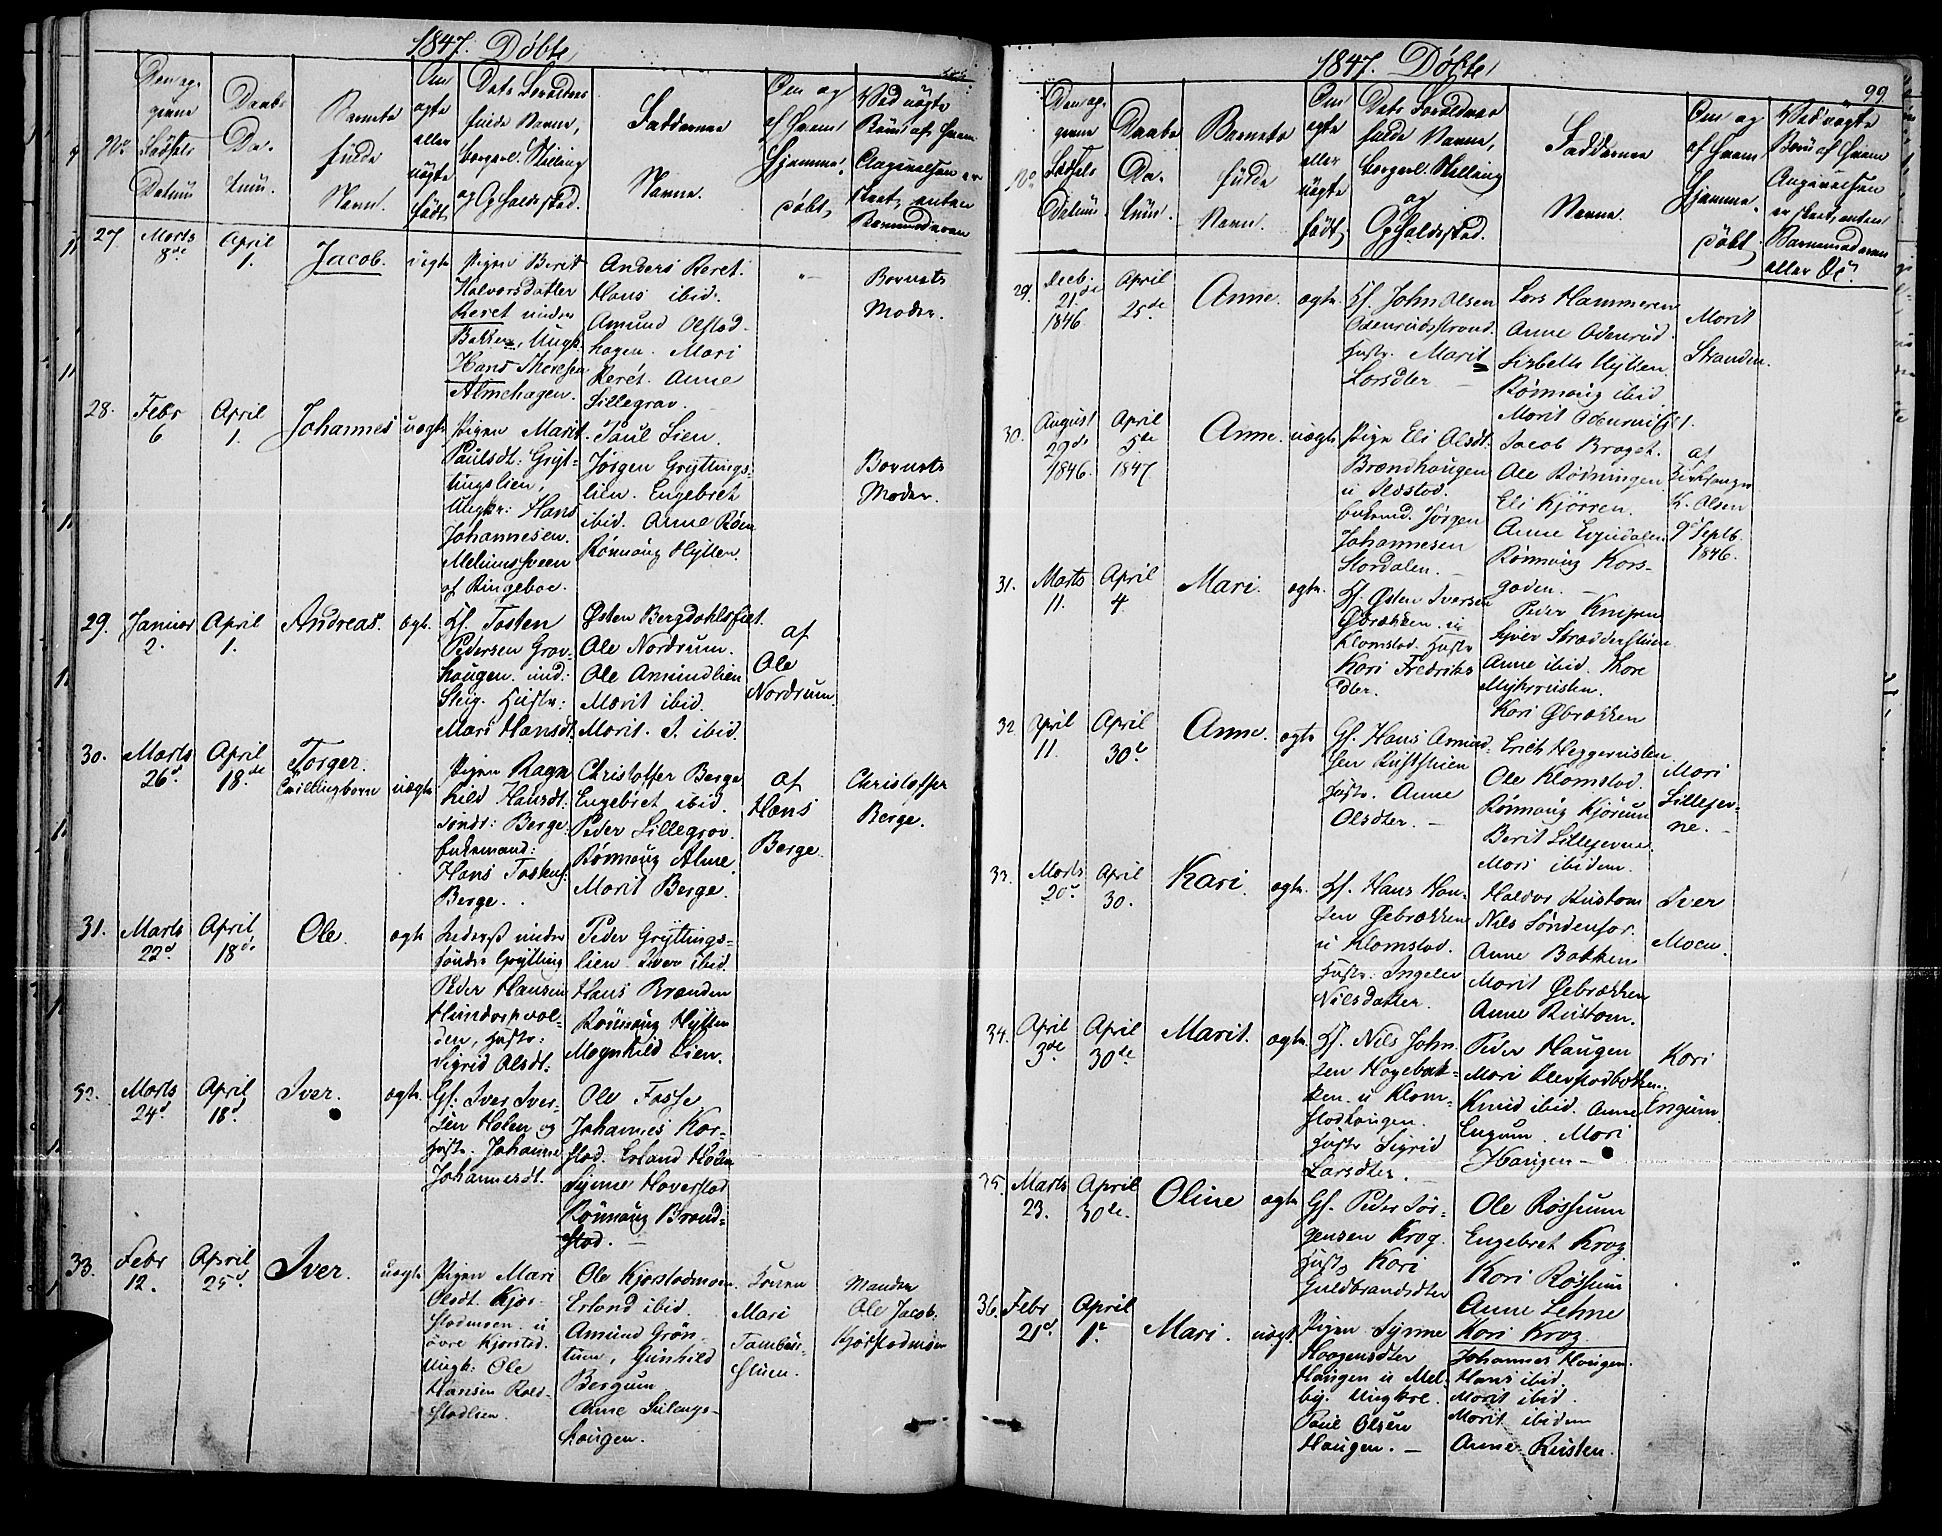 1847. Døbte
No
Den op-
givne
Fødsels
Datum
Daabs
Da-
tum.
Barnets
fulde
Navn.
Om
ægte
eller
uægte
født
Dets Forældres
fulde Navne,
borgerl. Stilling
og Opholdssted.
Faddernes
Navne.
Om og
af hvem
hjemme-
døbt,
Ved uægte
Børn af hvem
Angivelsen er
skeet, enten
Barnemoderen
27
Marts
8de
April
1.
Jacob.
uægte
Pigen Berit
Halvorsdatter
Beret under
Bakken, Ungk.
Hans
Almehagen.
Anders Beret.
Hans ibid.
Amund Olstad-
hagen. Mari
Beret. Anne
Sillegrav.
Barnets
Moder.
28.
Febr
6
April
1.
Johannes
uægte
Pigen Marit
Paulsdt: Gryt-
tingslien,
Ungkr: Hans
Johannesen.
af Ringeboe.
Paul Lien.
Jørgen Gryttings-
lien. Engebret
ibid. Anne
Rønnaug Hytten.
Barnets
Moder.
29.
Januar
2.
April
1.
Andreas.
ægt.
Gf. Tosten
Pedersen Grav-
haugen. und:
Steig. Hustr:
Mari Hansdt.
Østen Bergdahlsfjel.
Ole Nordrum.
Ole Amundlien
Marit ibid.
Marit. S. ibid.
af
Ole
Nordrum.
30.
Marts
26d
April
18de
Torger.
Tvillingbørn
uægte
Pigen Ragn
hild Hansdt.
søndr: Berge.
Enkemand:
Hans Tostens:
Berge.
Christoffer Berge
Engebret ibid.
Peder Sillegrov.
Rønnaug Alme.
Marit Berge.
af
Hans
Berge.
Christoffer
Berge.
31.
Marts
22d
April
18de
Ole.
ægte
Inderst under
søndre Grytting
Peder Hansen
Hundorpvol-
den, Hustr:
Sigrid Olsdt:
Peder Gryttings-
lien. Iver ibid.
Hans Brænden
Rønnaug Hytten
Magnhild Lien.
32.
Marts
24d
April
18d.
Iver.
ægte
Gf: Iver Iver-
sen Holen og
Hustr. Johanne
Johannesdt.
Ole Fosse
Johannes Kor-
stad. Erland Holen
Synne Haverstad
Rønnaug Brand-
stad.
33.
Febr
12.
April
25d
Iver.
uægte
Pigen Mari
Olsdt. Kjør-
stadmoen. u
øvre Kjorstad.
Ungk: Ole
Hansen
Ole Kjorstadmoen.
Erland ibid.
Amund Grøn-
tuen, Gunhild
Bergum
Anne
haugen.
Konen
Mari
Tambur-
stuen.
Manden
Ole Jacob:
Kjørstadmoen
1847. Døbte
99
No
Den op-
givne
Fødsels
Datum
Daabs
Da-
tum.
Barnets
fulde
Navn.
Om
ægte
eller
uægte
født,
Dets Forældres
fulde Navne,
borgerl. Stilling
og
Opholdssted.
Faddernes
Navne.
Om og
af hvem
hjemme-
døbt,
Ved uægte
Børn af hvem
Angivelsen
er skeet, enten
Barnemoderen
eller
29.
Decb.
21de
1846
April
25de
Anne.
ægte.
Gf. John Olsen
Odenrudstrand.
Hustr. Marit
Larsdter
Lars Hammeren
Anne Odenrud.
Lisbeth Hytten.
Rønnaug ibid.
Marit
Marit
Stranden.
30.
August
29de
1846.
April
5de
1847.
Anne.
uægte
Pige Eli Olsdt.
Brandhaugen
u
Enkemd. Jørgen
Johannesen
Stordalen.
Jacob Braget.
Ole Rødningen.
Eli Kjørren.
Anne
Rønnaug Kors-
gaden.
af
Kirkesanger
K. Olsen
9d Septb.
1846.
31.
Marts
11.
April
4.
Mari.
ægte.
Gf. Østen Iversen
Øbrækken. u
Klomstad. Hustr
Kari Fredriks
dter.
Peder
Anne ibid. Thore
Kari Øbrækken
32
April
11.
April
30te
Anne.
ægte
Gf. Hans Amund-
sen
Hustr. Anne
Olsdter.
Erich Heggerusten.
Ole Klomstad.
Rønnaug Kjorum
Berit Lillejevne.
Mari ibidem.
Mari
Lillejev-
ne.
33.
Marts
20d
April
30.
Kari.
ægte.
Gf. Hans Han-
sen Øebrækken
u Klomstad.
Hustr: Ingeler
Nilsdatter.
Haldor Rustom
Nils Søndenfor.
Anne Bakken
Marit Øebrækken
Anne Rustom.
Iver
Moen.
34.
April
3de
April
30te
Marit.
ægte.
Gf. Nils John-
sen Hagebak-
ken. u Klom-
stadhaugen.
Hustr Sigrid
Larsdter.
Peder Haugen
Mari
Knud ibid. Anne
Engum. Mari
Haugen
Kari
Engum.
35.
Marts
23.
April
30te.
Oline
ægte
Gf. Peder Jør-
gensen Krog.
Hustr. Kari
Guldbrandsdter
Ole Rossum
Engebret Krog
Kari Rossum
Anne Lehne
Kari Krog.
36.
Febr
21d.
April
1t
Mari.
uægt.
Pigen Synne
Haagensdter
Haugen u Mel-
by. Ungkrl.
Poul Olsen
Haugen.
Johannes Haugen.
Hans ibid.
Marit ibid.
Marit ibidem
Anne Rusten.